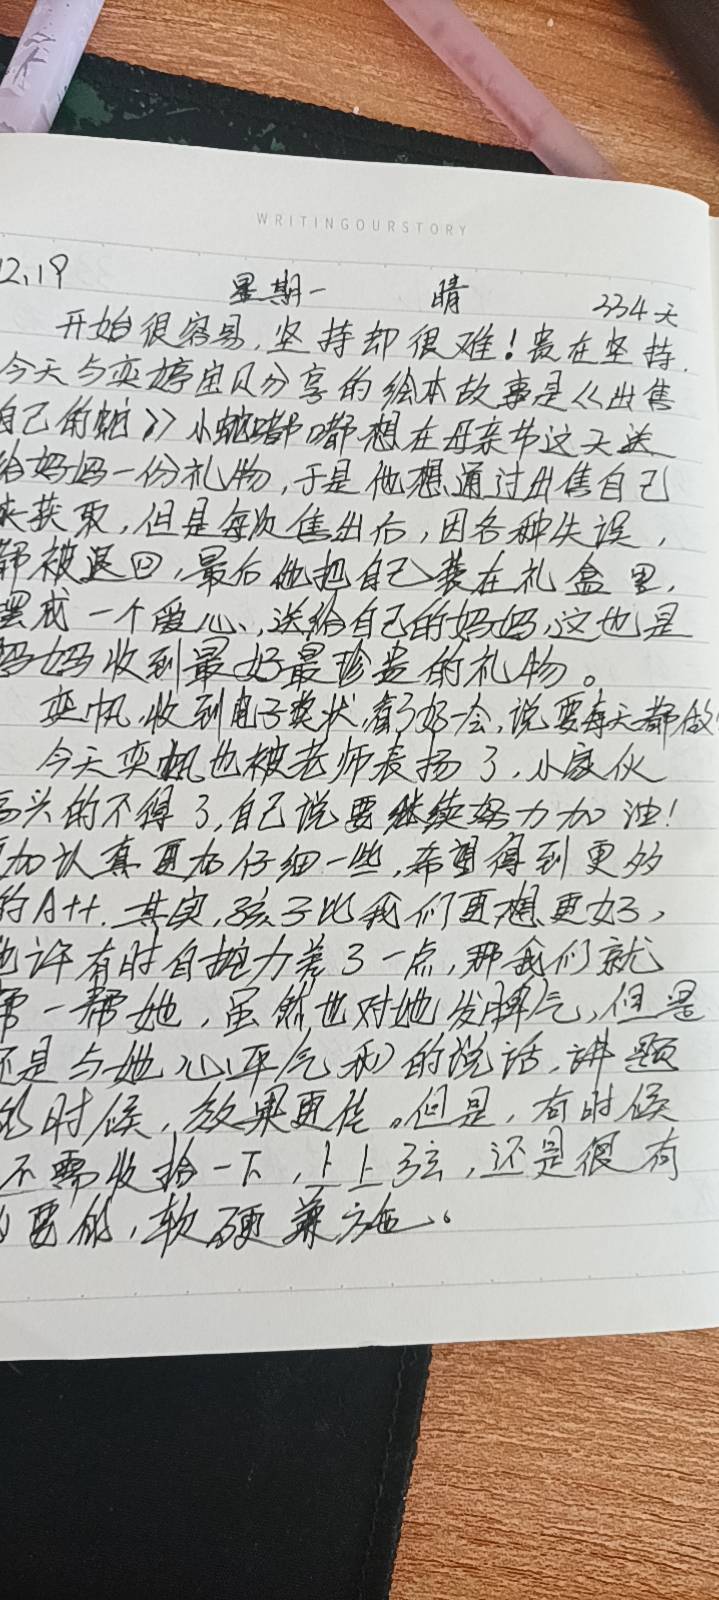 WRITINGOURSTORY
12.19 星期一 晴 334天
开始很容易,坚持却很难!贵在坚持.
今天与奕婷宝贝分享的绘本故事是《出售
自己的蛇》小蛇嘟嘟想在母亲节这天送
给妈妈一份礼物,于是他想通过出售自己
来获取,但是每次售出后,因各种失误,
都被退回,最后他把自己装在礼盒里,
摆成一个爱心,送给自己的妈妈,这也是
妈妈收到最好最珍贵的礼物。
奕帆收到电子奖状,看了好一会,说要每天都做
今天奕帆也被老师表扬了,小家伙
高兴的不得了,自己说要继续努力加油!
更加认真更加仔细一些,希望得到更多
的A++.其实,孩子比我们更想更好,
也许有时自控力差了一点,那我们就
帮一帮她,虽然也对她发脾气,但是
还是与她心平气和的说话,讲题
的时候,效果更佳。但是,有时候
不需收拾一下,上上弦,还是很有
必要的,软硬兼施。